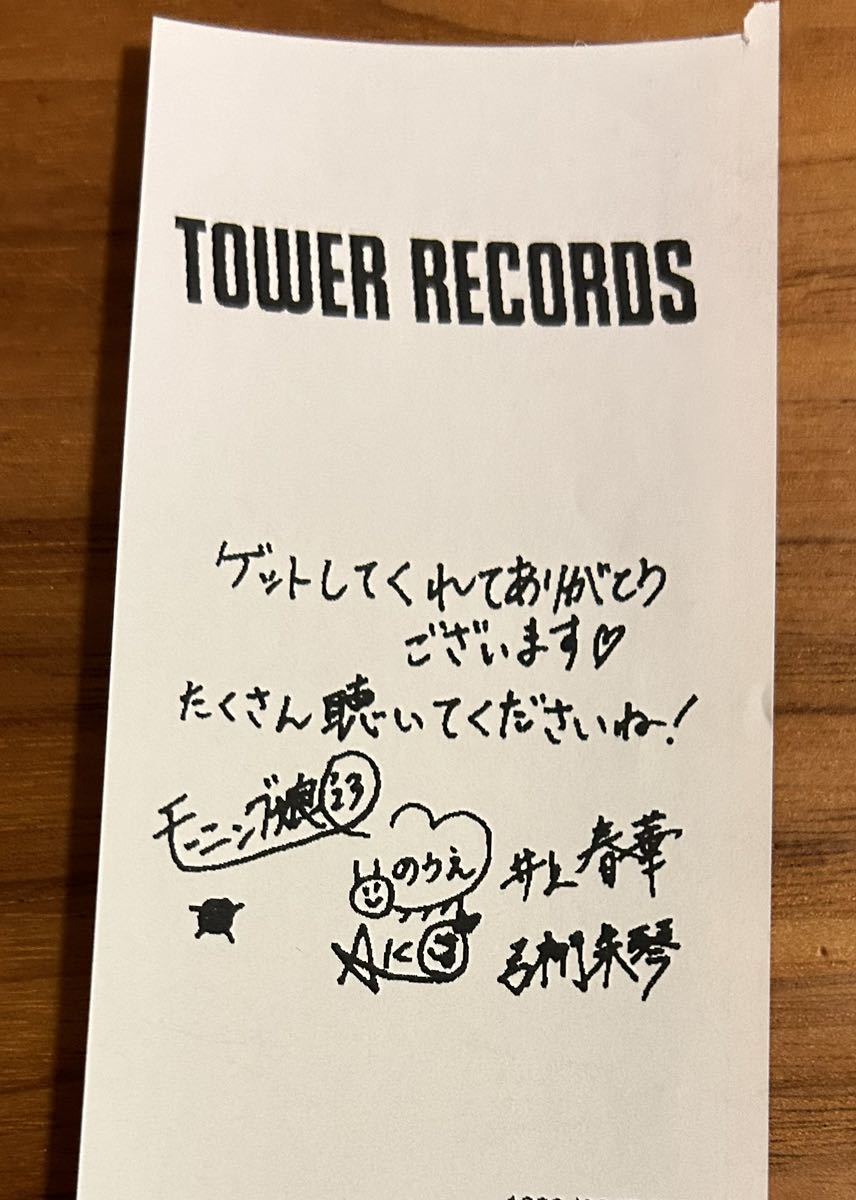 TOWER RECORDS
ゲットしてくれてありがとう
ございます♡
たくさん聴いてくださいね！
モーニング娘'23
のうえ 井上春華
弓桁朱琴